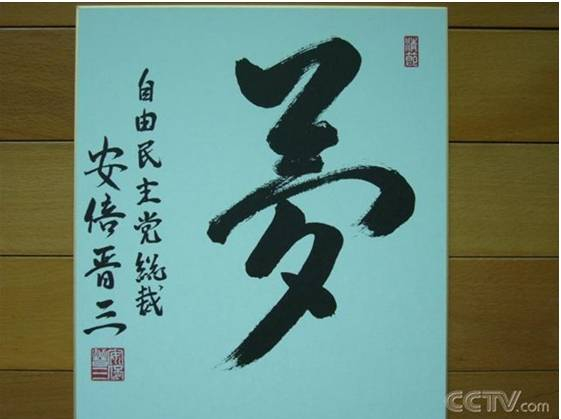 夢
自由民主党総裁
安倍晋三
CCTV.com